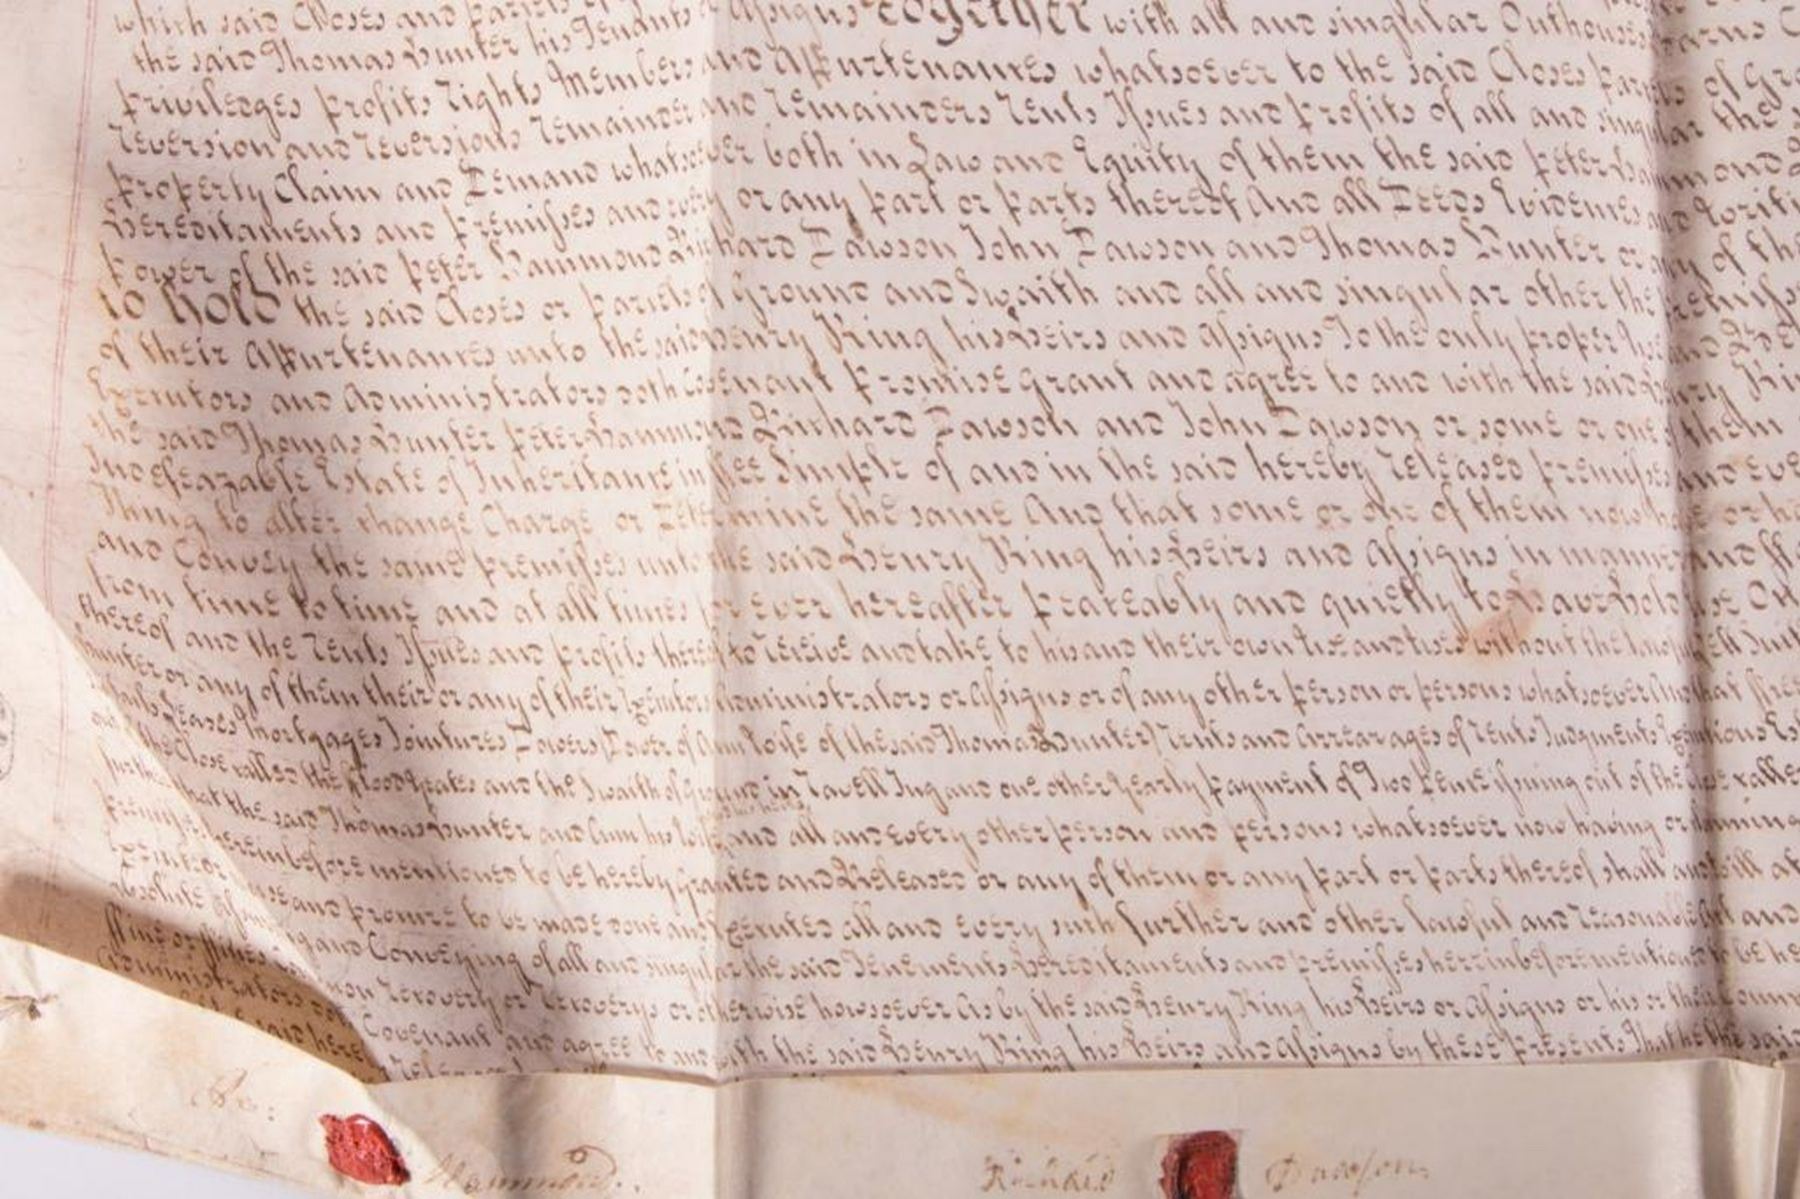 which said Closes and parcels of Assigns Together with all and singular Outhouses Barns
the said Thomas Hunter his Tenants and Appurtenances whatsoever to the said Closes parcels of Gro
priviledges profits Rights Members and Remainders Rents Issues and profits of all and singular the
Reversion and Reversions Remainder whatsoever both in Law and Equity of them the said Peter Hammond
property Claim and Demand or any part or parts thereof And all Deeds Evidences and Writi
Hereditaments and premisses and every Richard Dawson John Dawson and Thomas Hunter or any of the
power of the said Peter Hammond
to hold the said Closes or parcels of Ground and Swaith and all and singular other the premiss
of their Appurtenances unto the said Henry King his Heirs and Assigns To the only proper Use and
Executors and Administrators doth Covenant promise grant and agree to and with the said Henry Kin
the said Thomas Hunter Peter Hammond Richard Dawson and John Dawson or some or one of them
Indefeazable Estate of Inheritance in ffee Simple of and in the said hereby released premisses and eve
Thing to alter change Charge or Determine the same And that some or one of them now have or ha
and Convey the same premisses unto the said Henry King his Heirs and Assigns in manner and ff
from time to time and at all times for ever hereafter peaceably and quietly to have hold use Occ
thereof and the Rents Issues and profits thereof to receive and take to his and their own Use and Uses without the lawfull
Hunter or any of them their or any of their Executors Administrators or Assigns or of any other person or persons whatsoever And that ffree
Leases Mortgages Jointures Dowers (Dower of Ann Wife of the said Thomas Hunter) Rents and Arrearages of Rents Judgments Executions
the Close called the and the Swaith of Ground in Ing and one other yearly payment of Two pence issuing out of the Close called
further that the said Thomas Hunter and Ann his Wife and all and every other person and persons whatsoever now having or claiming
premisses hereinbefore mentioned to be hereby Granted and Released or any of them or any part or parts thereof shall and will at
Execute cause and procure to be made done and Executed all and every such further and other lawful and reasonable Act and
absolute Assuring and Conveying of all and singular the said Tenements Hereditaments and premisses hereinbefore mentioned to be he
ffine or ffines Common Recovery or Recoverys or otherwise howsoever As by the said Henry King his Heirs or Assigns or his or their Couns
Administrators doth Covenant and agree to and with the said Henry King his Heirs and Assigns by these presents That the said
said here
Hammond. Richard Dawson